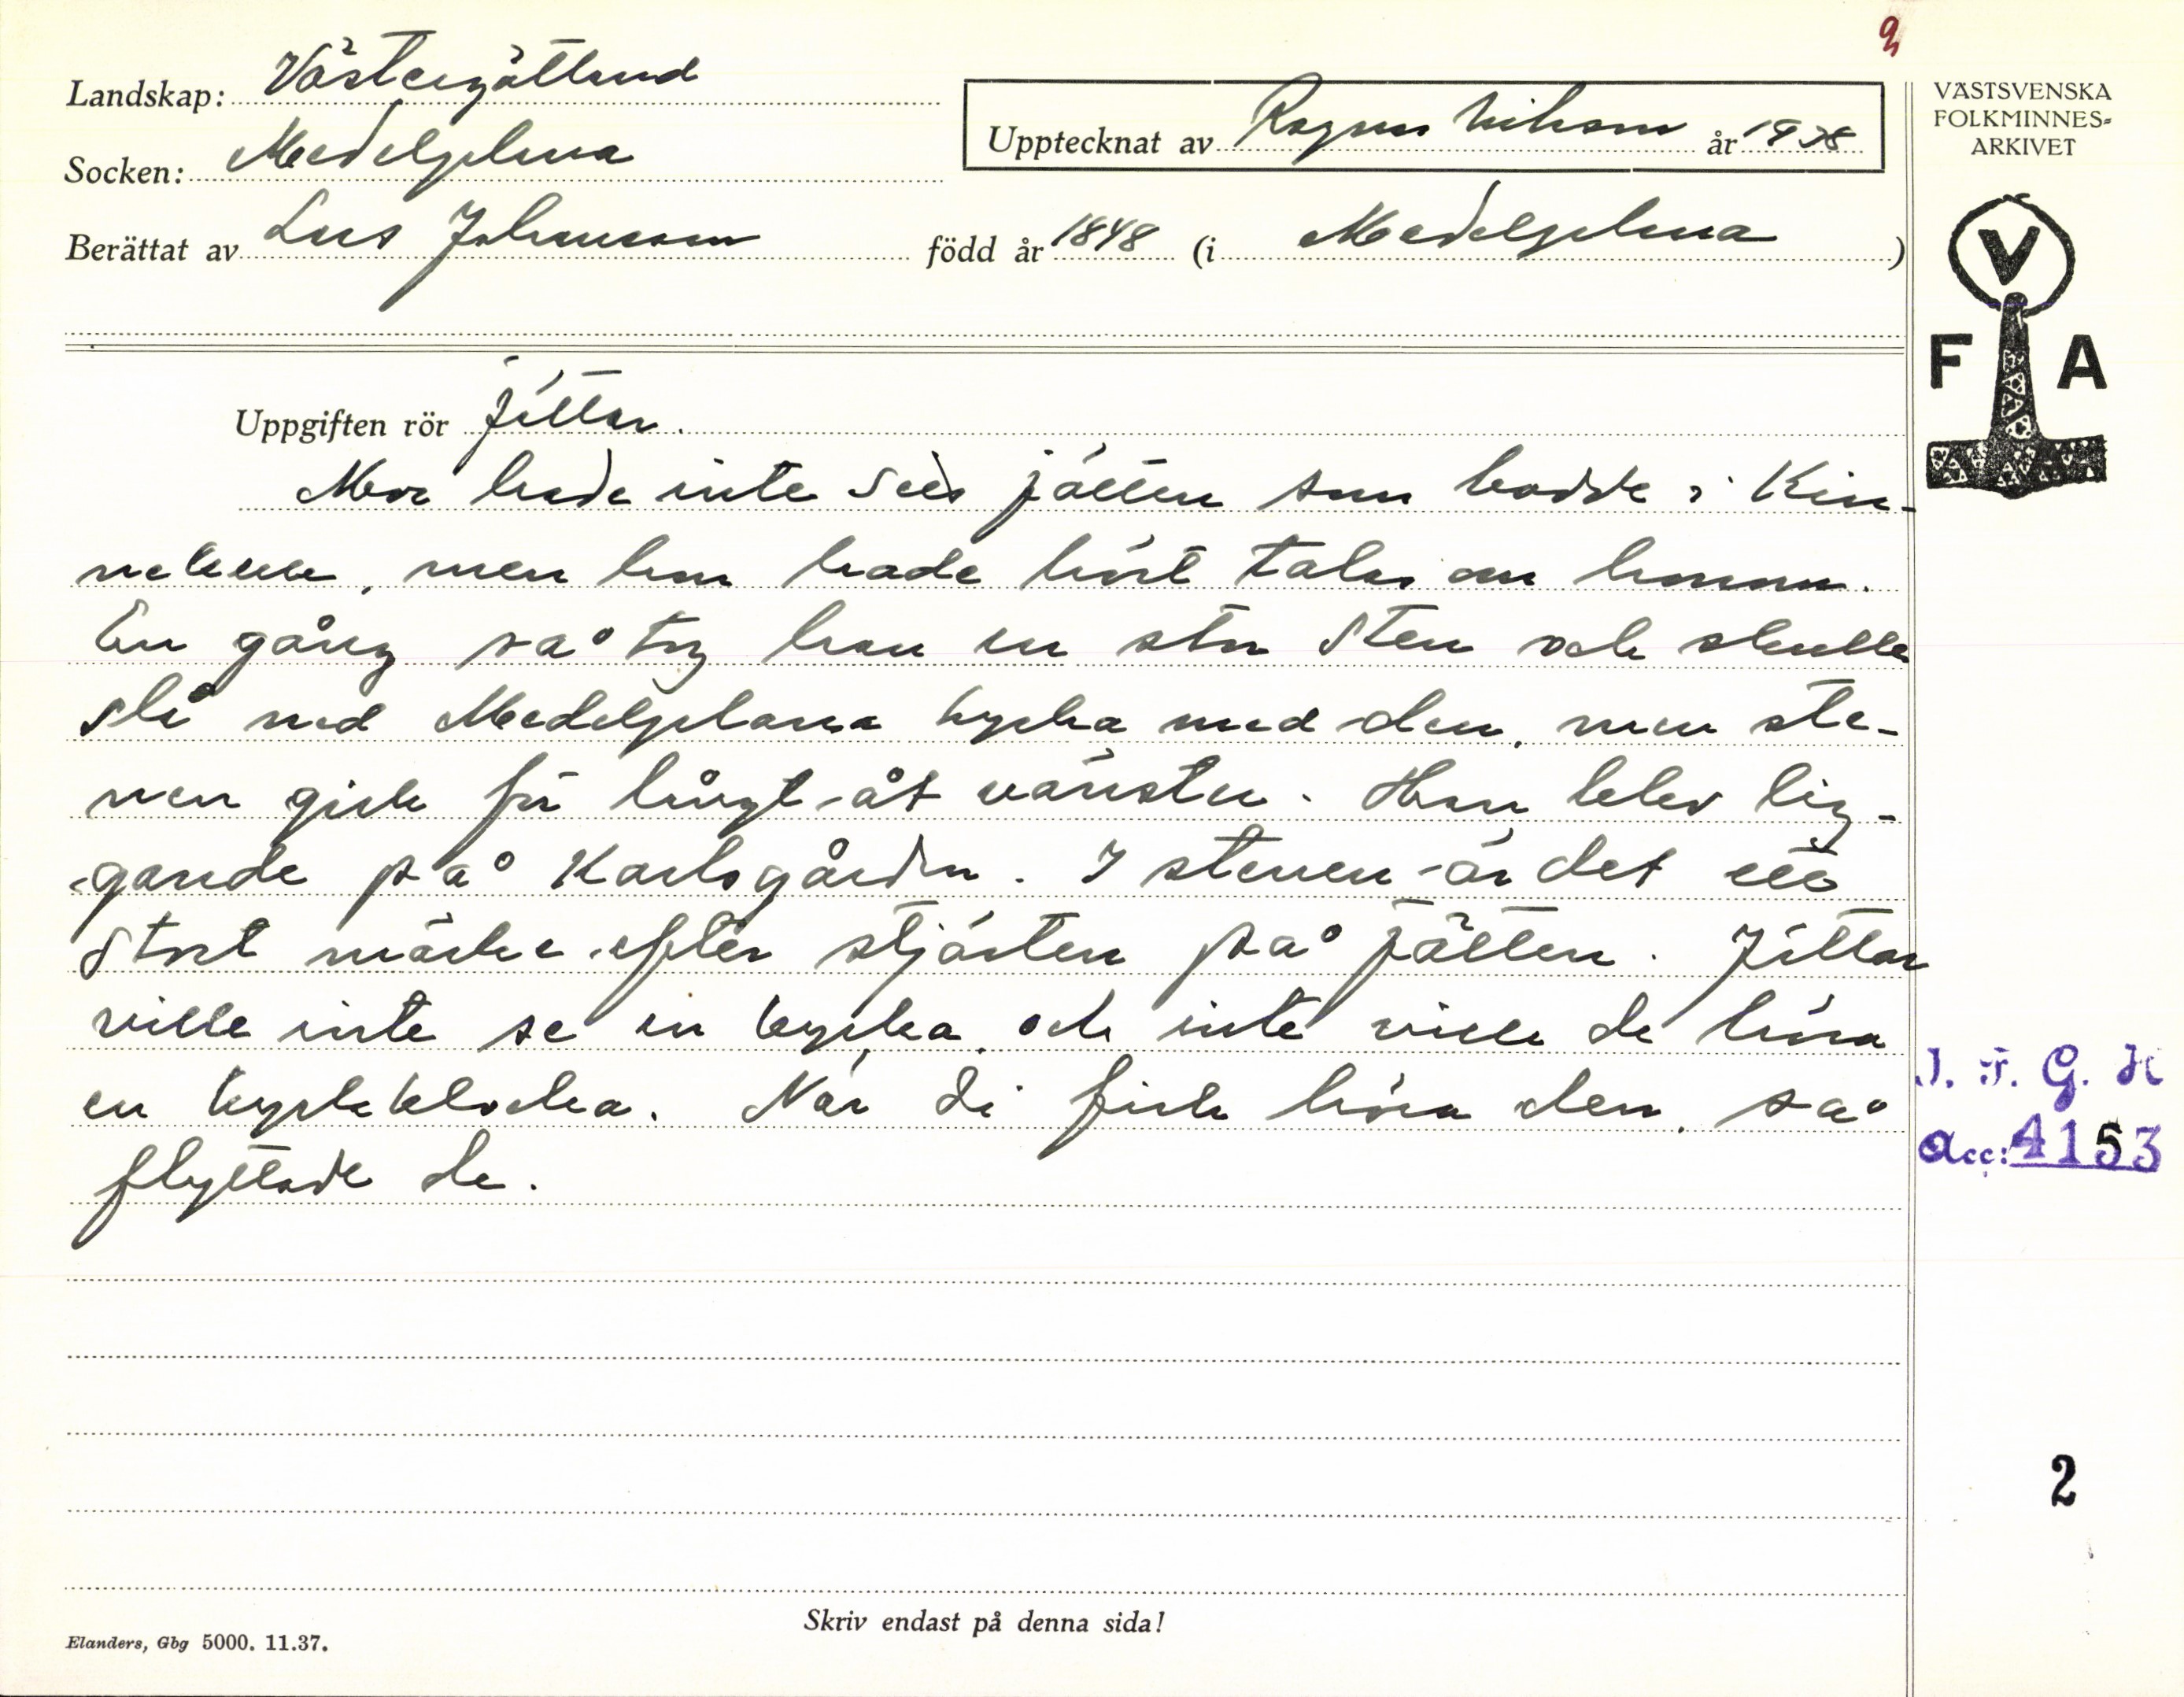 9
Landskap: Västergötland
Upptecknat av Ragnar Nilsson år 1938
Socken: Medelplana
Berättat av Lars Johansson född år 1848 (i Medelplana)
VÄSTSVENSKA
FOLKMINNES=
ARKIVET
V
F A
Uppgiften rör Jättar.
Mor hade inte sett jätten som bodde i Kin-
nekulle, men hon hade hört talas om honom.
En gång så tog han en stor sten och skulle
slå ned Medelplana kyrka med den, men ste-
nen gick för långt åt vänster. Han blev lig-
gande på Karlsgården. I stenen är det ett
stort märke efter stjärten på jätten. Jättar
ville inte se en kyrka och inte ville de höra
en kyrkklocka. När di fick höra den, så
flyttade de.
I. F. G. H
Acc: 4153
2
Skriv endast på denna sida!
Elanders, Gbg 5000. 11.37.